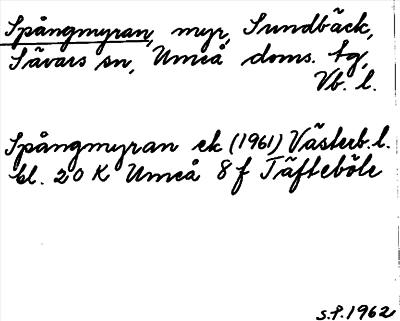 Spångmyran, myr, Sundbäck,
Sävars sn, Umeå doms. tg,
Vb. l.
Spångmyran ek (1961) Västerb. l.
bl. 20 K Umeå 8 f Täfteböle
S.P. 1962